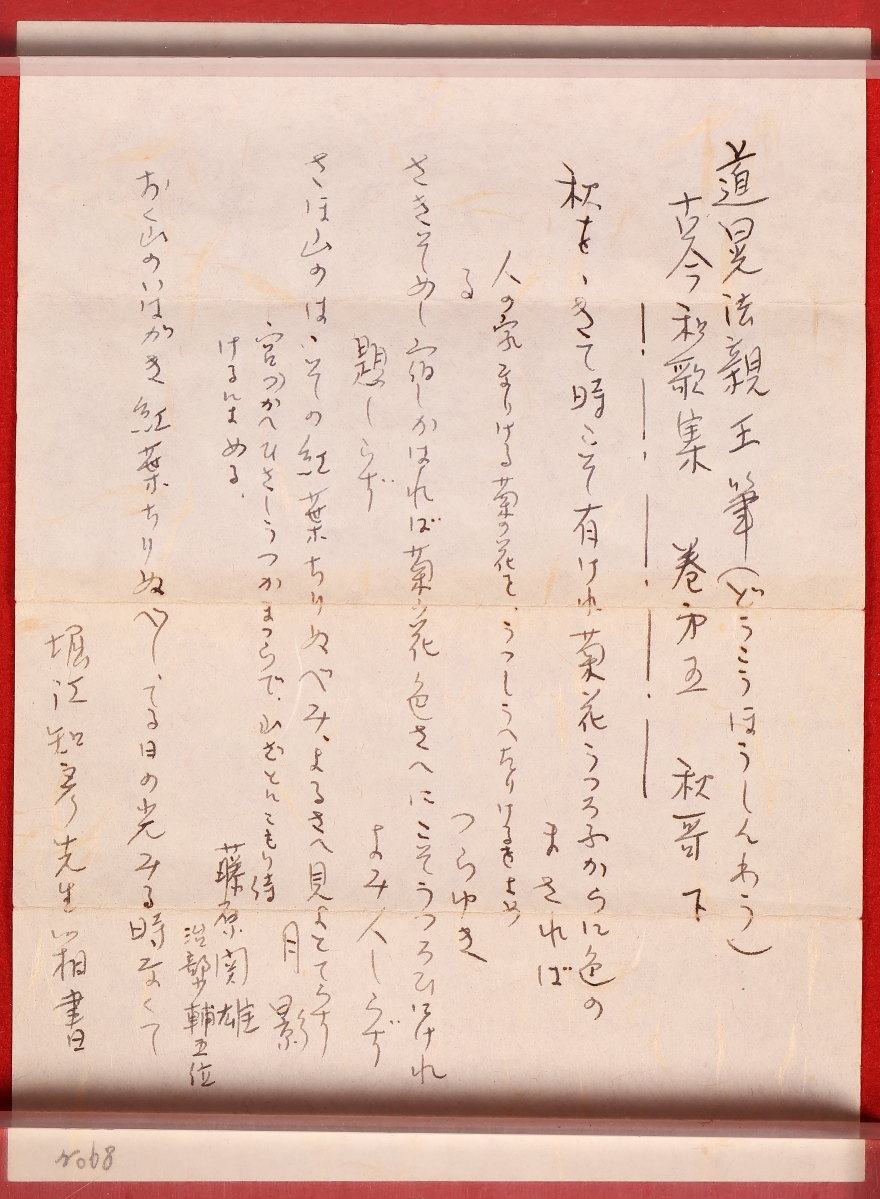 道晃法親王筆(どうこうほうしんわう)
古今和歌集 巻第五 秋哥下
秋をゝきて時こそ有けれ菊花うつろふからに色の
まされば
人の家なりける菊の花を、うつしうへたりけるをよめ
る
つらゆき
さきそめし宿しかはれば菊の花色さへにこそうつろひにけれ
題しらず
よみ人しらず
さほ山のはゝその紅葉ちりぬべみ、よるさへ見よとてらす
月影
宮つかへひさしうつかまつらで、山ざとにこもり侍
けるによめる、
藤原関雄
治部輔五位
おく山のいはがき紅葉ちりぬべし、てる日の光みる時なくて
堀江知彦先生